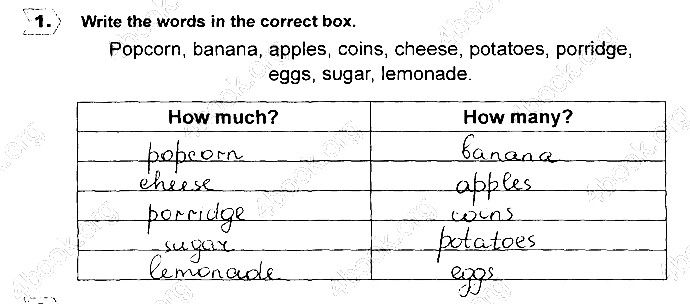 1. Write the words in the correct box.
Popcorn, banana, apples, coins, cheese, potatoes, porridge,
eggs, sugar, lemonade.
How much? How many?
popcorn banana
cheese apples
porridge coins
sugar potatoes
lemonade eggs